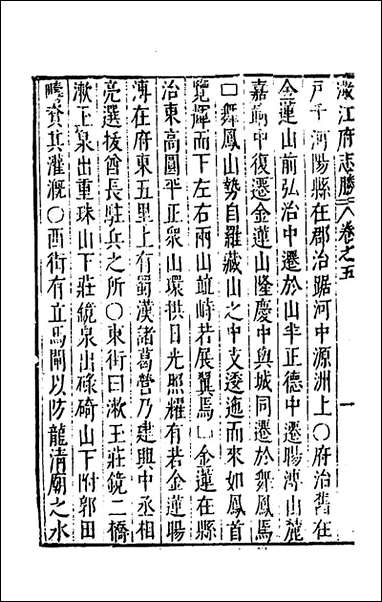 澂江府志勝 卷之五 一
戶千河陽縣在郡治踞河中源洲上〇府治舊在
金蓮山前弘治中遷於山半正德中遷暘溥山麓
嘉靖中復遷金蓮山隆慶中與城同遷於舞鳳焉
口舞鳳山勢自羅藏山之中支逶迤而來如鳳首
覽輝而下左右兩山竝峙若展翼焉〇金蓮在縣
治東高圓平正衆山環供日光照耀有若金蓮暘
溥在府東五里上有蜀漢諸葛營乃建興中丞相
亮選拔酋長駐兵之所〇東街曰漱玉莊鏡二橋
漱玉泉出重珠山下莊鏡泉出碌碕山下附郭田
疇資其灌溉〇西街有立馬閘以防龍清廟之水